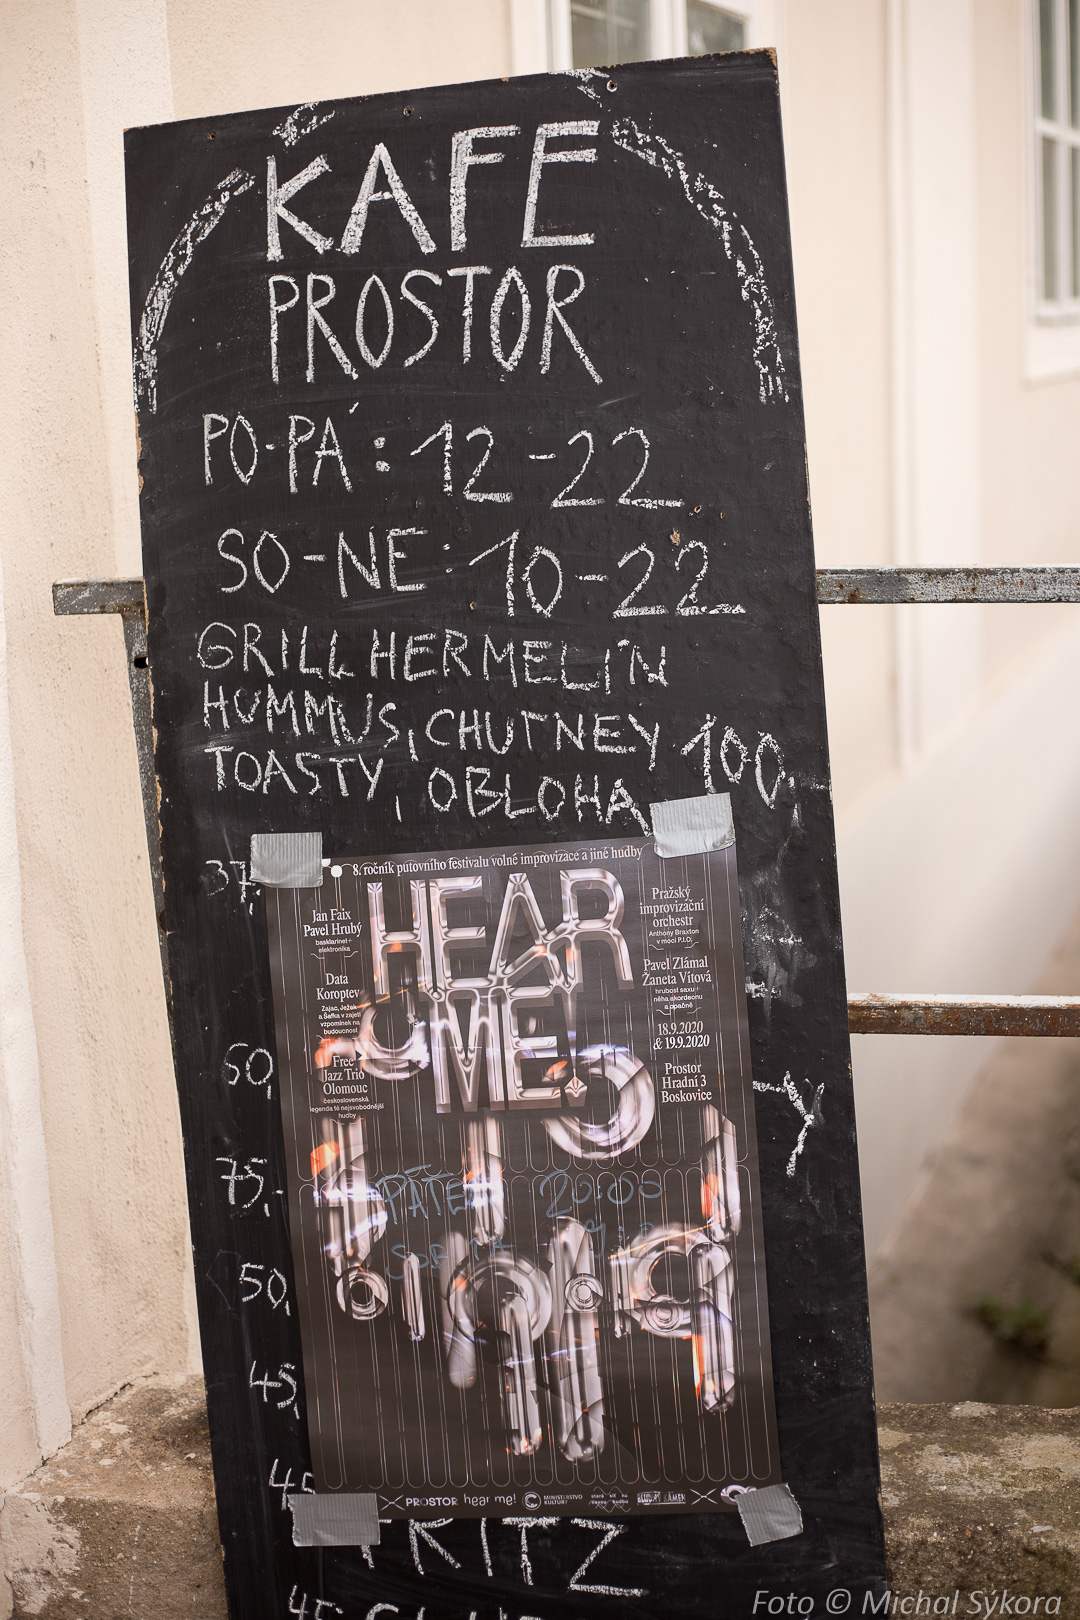 KAFE
PROSTOR
PO-PÁ: 12-22
SO-NE: 10-22
GRILL HERMELÍN
HUMMUS, CHUTNEY 100,-
TOASTY, OBLOHA
37,-
8. ročník putovního festivalu volné improvizace a jiné hudby
HEAR
ME!
Jan Faix
Pavel Hrubý
basklarinet+
elektronika
Data
Koroptev
Zajac, Ježek
a Šafka v zajetí
vzpomínek na
budoucnost
Free
Jazz Trio
Olomouc
československá
legenda té nejsvobodnější
hudby
Pražský
improvizační
orchestr
Anthony Braxton
v moci P.I.O.
Pavel Zlámal
Žaneta Vítová
hrubost saxu+
něha akordeonu
a opačně
18.9.2020
& 19.9.2020
Prostor
Hradní 3
Boskovice
60,
Y
75,-
PÁTEK 20:00
SOBOTA
50,
45,
45
PROSTOR hear me! MINISTERSTVO
KULTURY
FRITZ
45,
Foto © Michal Sýkora